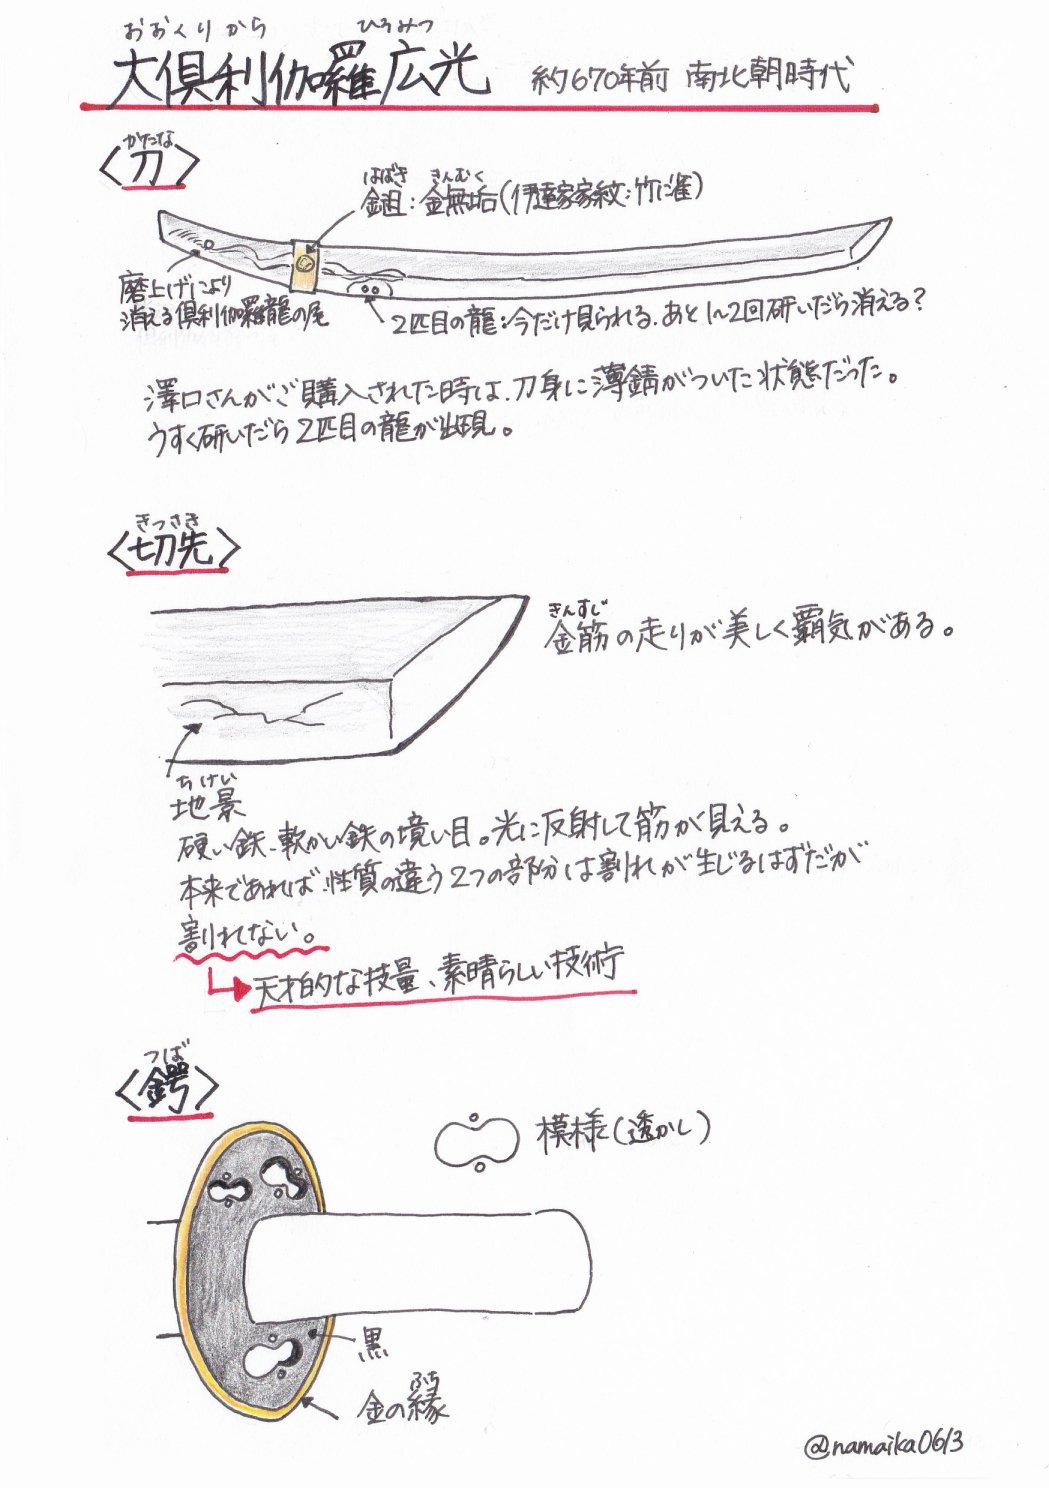 おおくりから ひろみつ
大倶利伽羅広光 約670年前 南北朝時代
かたな
〈刀〉
はばき きんむく
鎺:金無垢(伊達家家紋:竹に雀)
磨上げにより
消える倶利伽羅龍の尾
2匹目の龍:今だけ見られる、あと1~2回研いだら消える?
澤口さんがご購入された時は、刀身に薄錆がついた状態だった。
うすく研いだら2匹目の龍が出現。
きっさき
〈切先〉
きんすじ
金筋の走りが美しく覇気がある。
ちけい
地景
硬い鉄、軟かい鉄の境い目。光に反射して筋が見える。
本来であれば、性質の違う2つの部分は割れが生じるはずだが
割れてない。
天才的な技量、素晴らしい技術
つば
〈鍔〉
模様(透かし)
黒
ふち
金の縁
@namaika0613